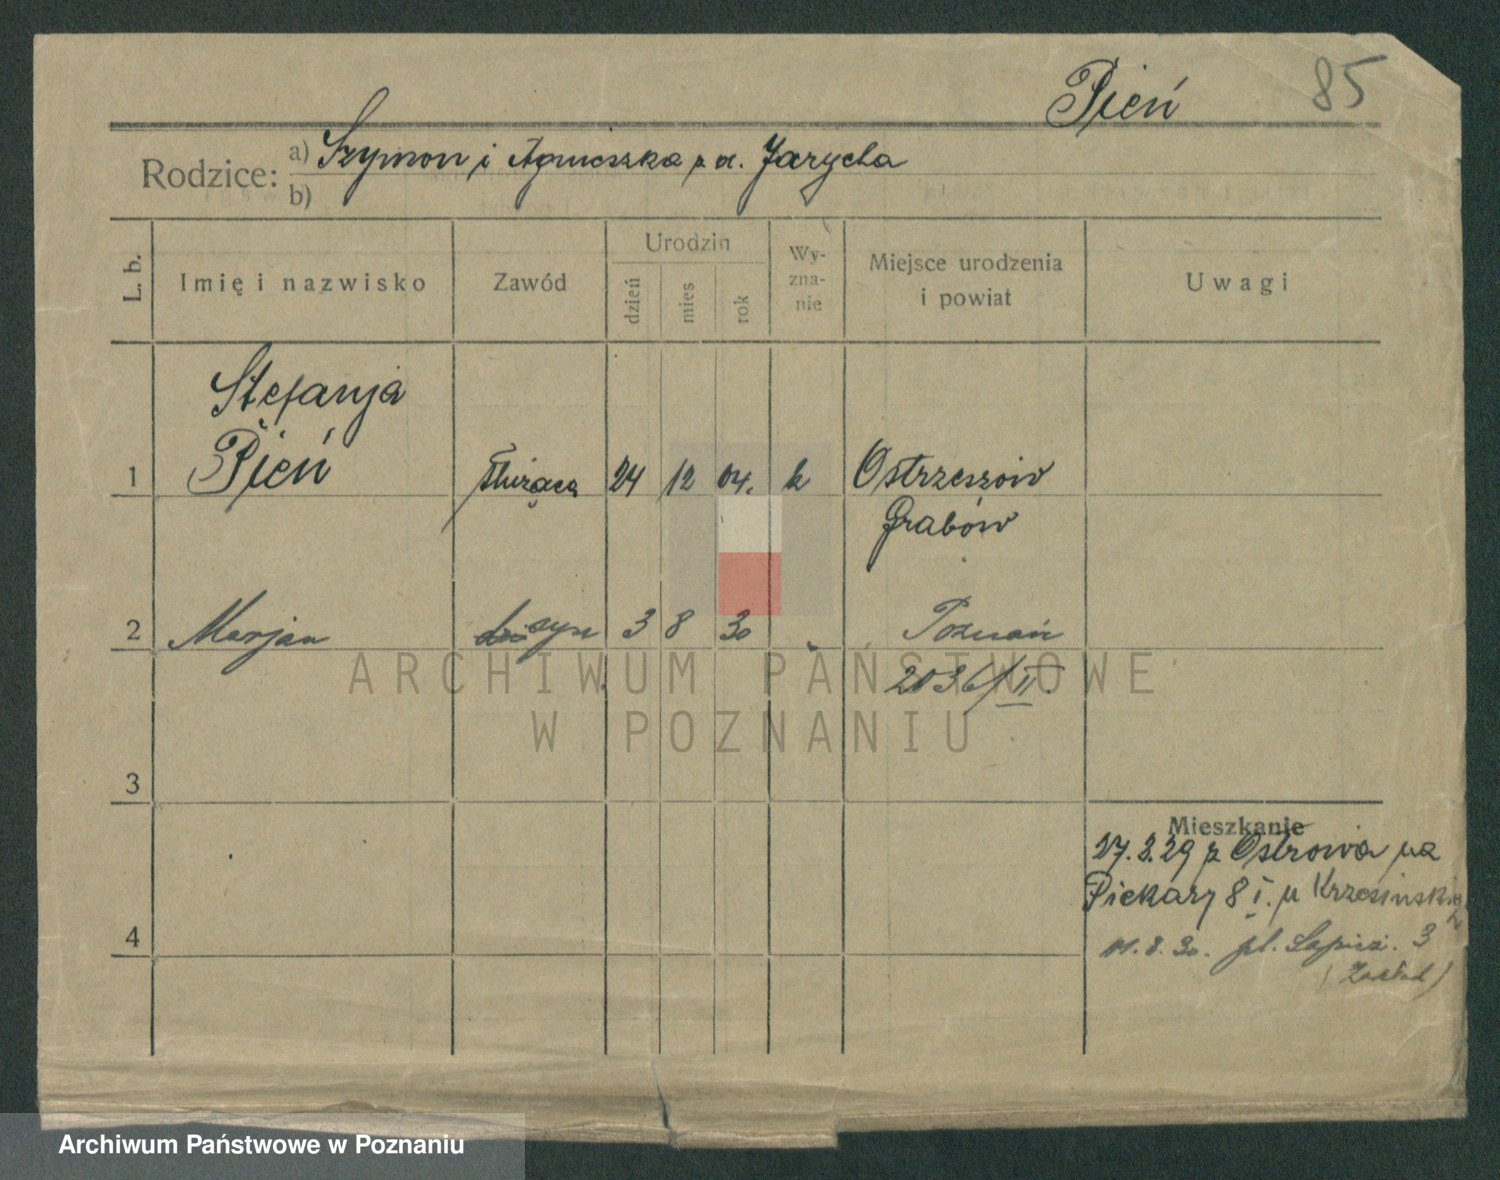 Pień 85
Rodzice: a) Szymon i Agnieszka z d. Jarycha
b)
L. b. Imię i nazwisko Zawód Urodzin dzień mies rok Wyznanie Miejsce urodzenia i powiat Uwagi
Stefanja
1 Pień służąca 24 12 04. k Ostrzeszów
Grabów
2 Marjan syn 3 8 30 Poznań
2036/II.
3
Mieszkanie
27.3.29 z Ostrowa na
Piekary 8 I. u Krzesińskie
4
11.8.30. pl. Sapież. 3
(Zakład)
ARCHIWUM PAŃSTWOWE
W POZNANIU
Archiwum Państwowe w Poznaniu